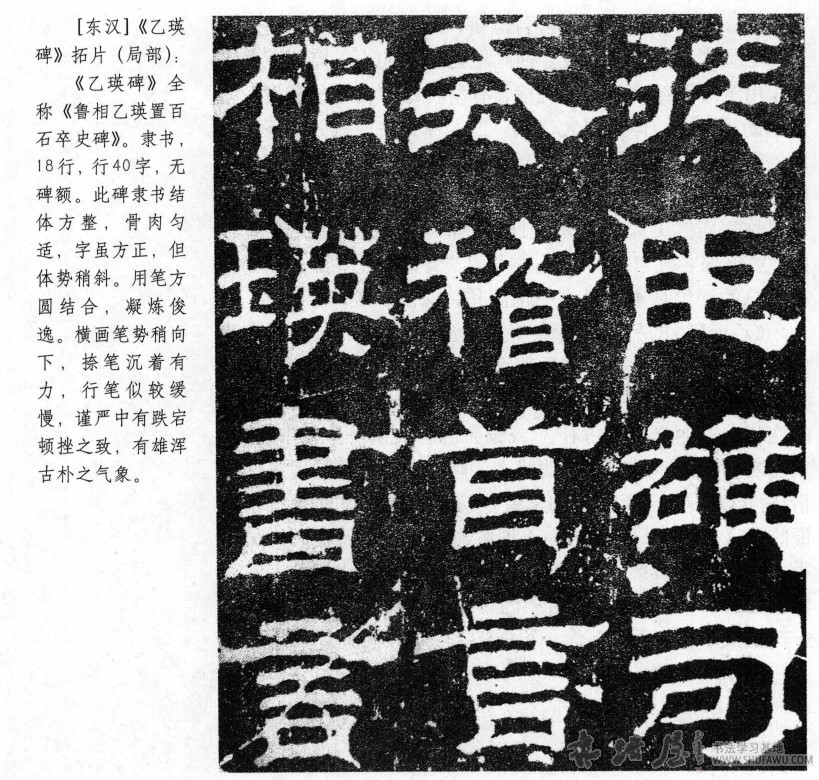 [东汉]《乙瑛
碑》拓片（局部）：
《乙瑛碑》全
称《鲁相乙瑛置百
石卒史碑》。隶书，
18行，行40字，无
碑额。此碑隶书结
体方整，骨肉匀
适，字虽方正，但
体势稍斜。用笔方
圆结合，凝炼俊
逸。横画笔势稍向
下，捺笔沉着有
力，行笔似较缓
慢，谨严中有跌宕
顿挫之致，有雄浑
古朴之气象。
徒臣雄司
戒稽首言
相瑛書言
书法屋
书法学习基地
WWW.SHUFAWU.COM